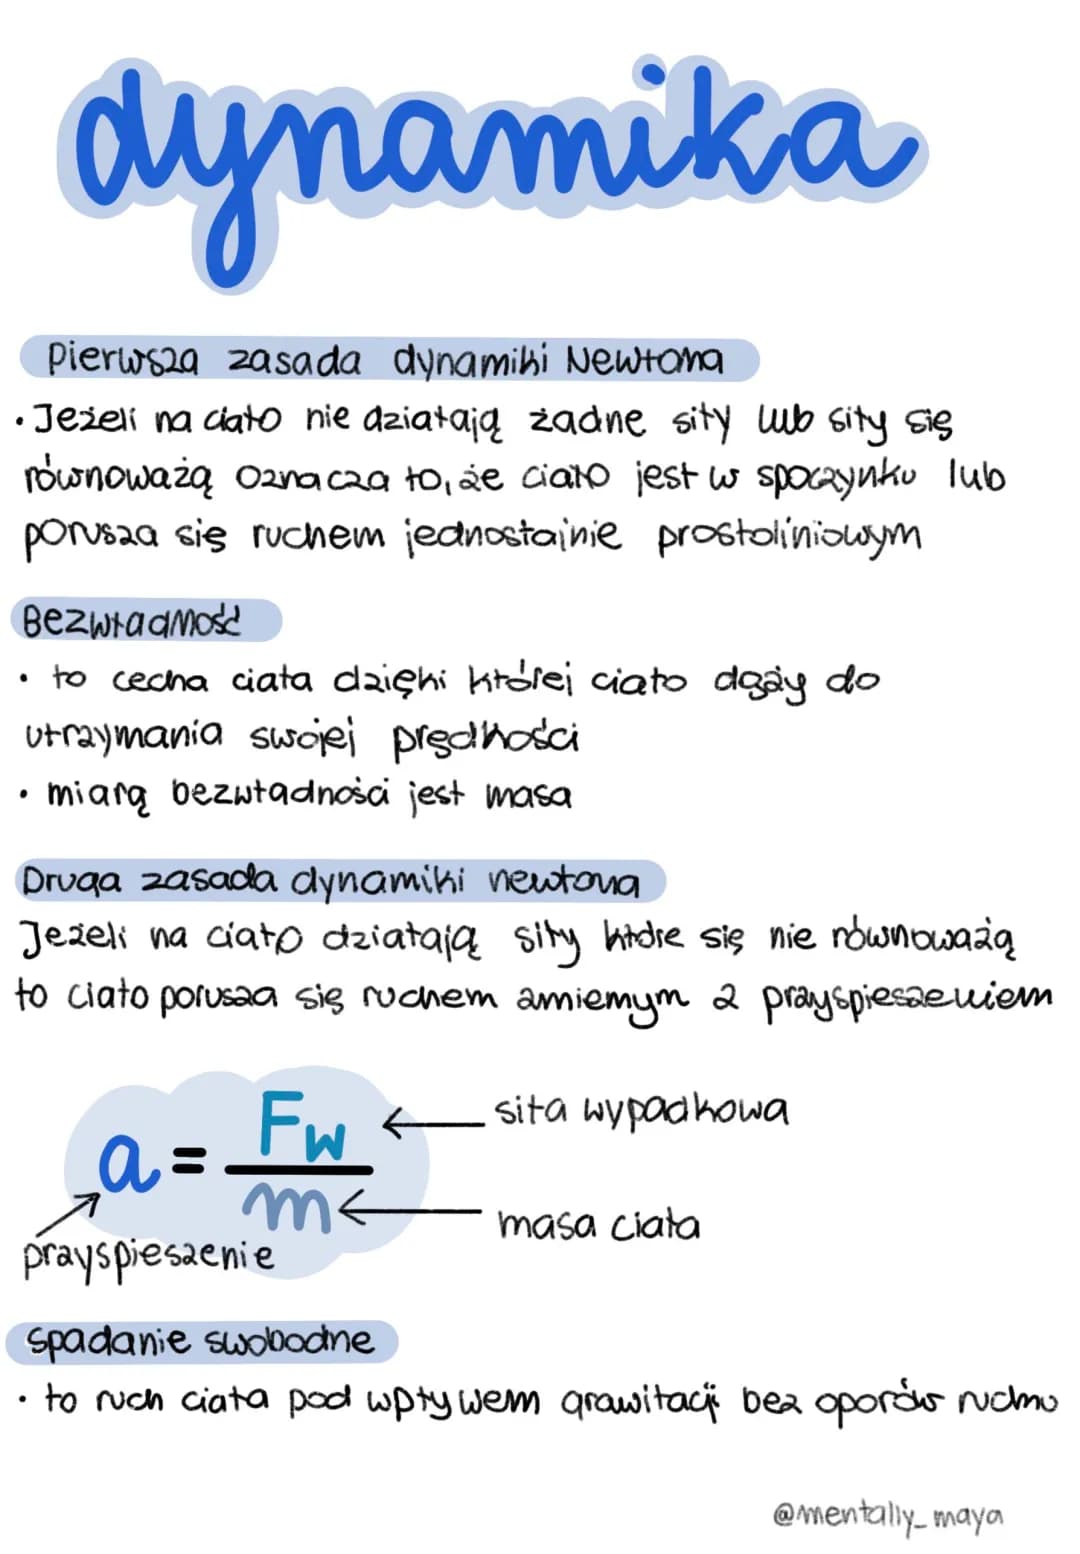 dynamika
Pierwsza zasada dynamiki Newtona
• Jeżeli na ciało nie działają żadne siły lub siły się
równoważą oznacza to, że ciało jest w spoczynku lub
porusza się ruchem jednostajnie prostoliniowym
Bezwładność
• to cecha ciała dzięki której ciało dąży do
utrzymania swojej prędkości
• miarą bezwładności jest masa
Druga zasada dynamiki newtona
Jeżeli na ciało działają siły które się nie równoważą
to ciało porusza się ruchem zmiennym z przyspieszeniem
a = Fw / m
siła wypadkowa
masa ciała
przyspieszenie
spadanie swobodne
• to ruch ciała pod wpływem grawitacji bez oporów ruchu
@mentally_maya